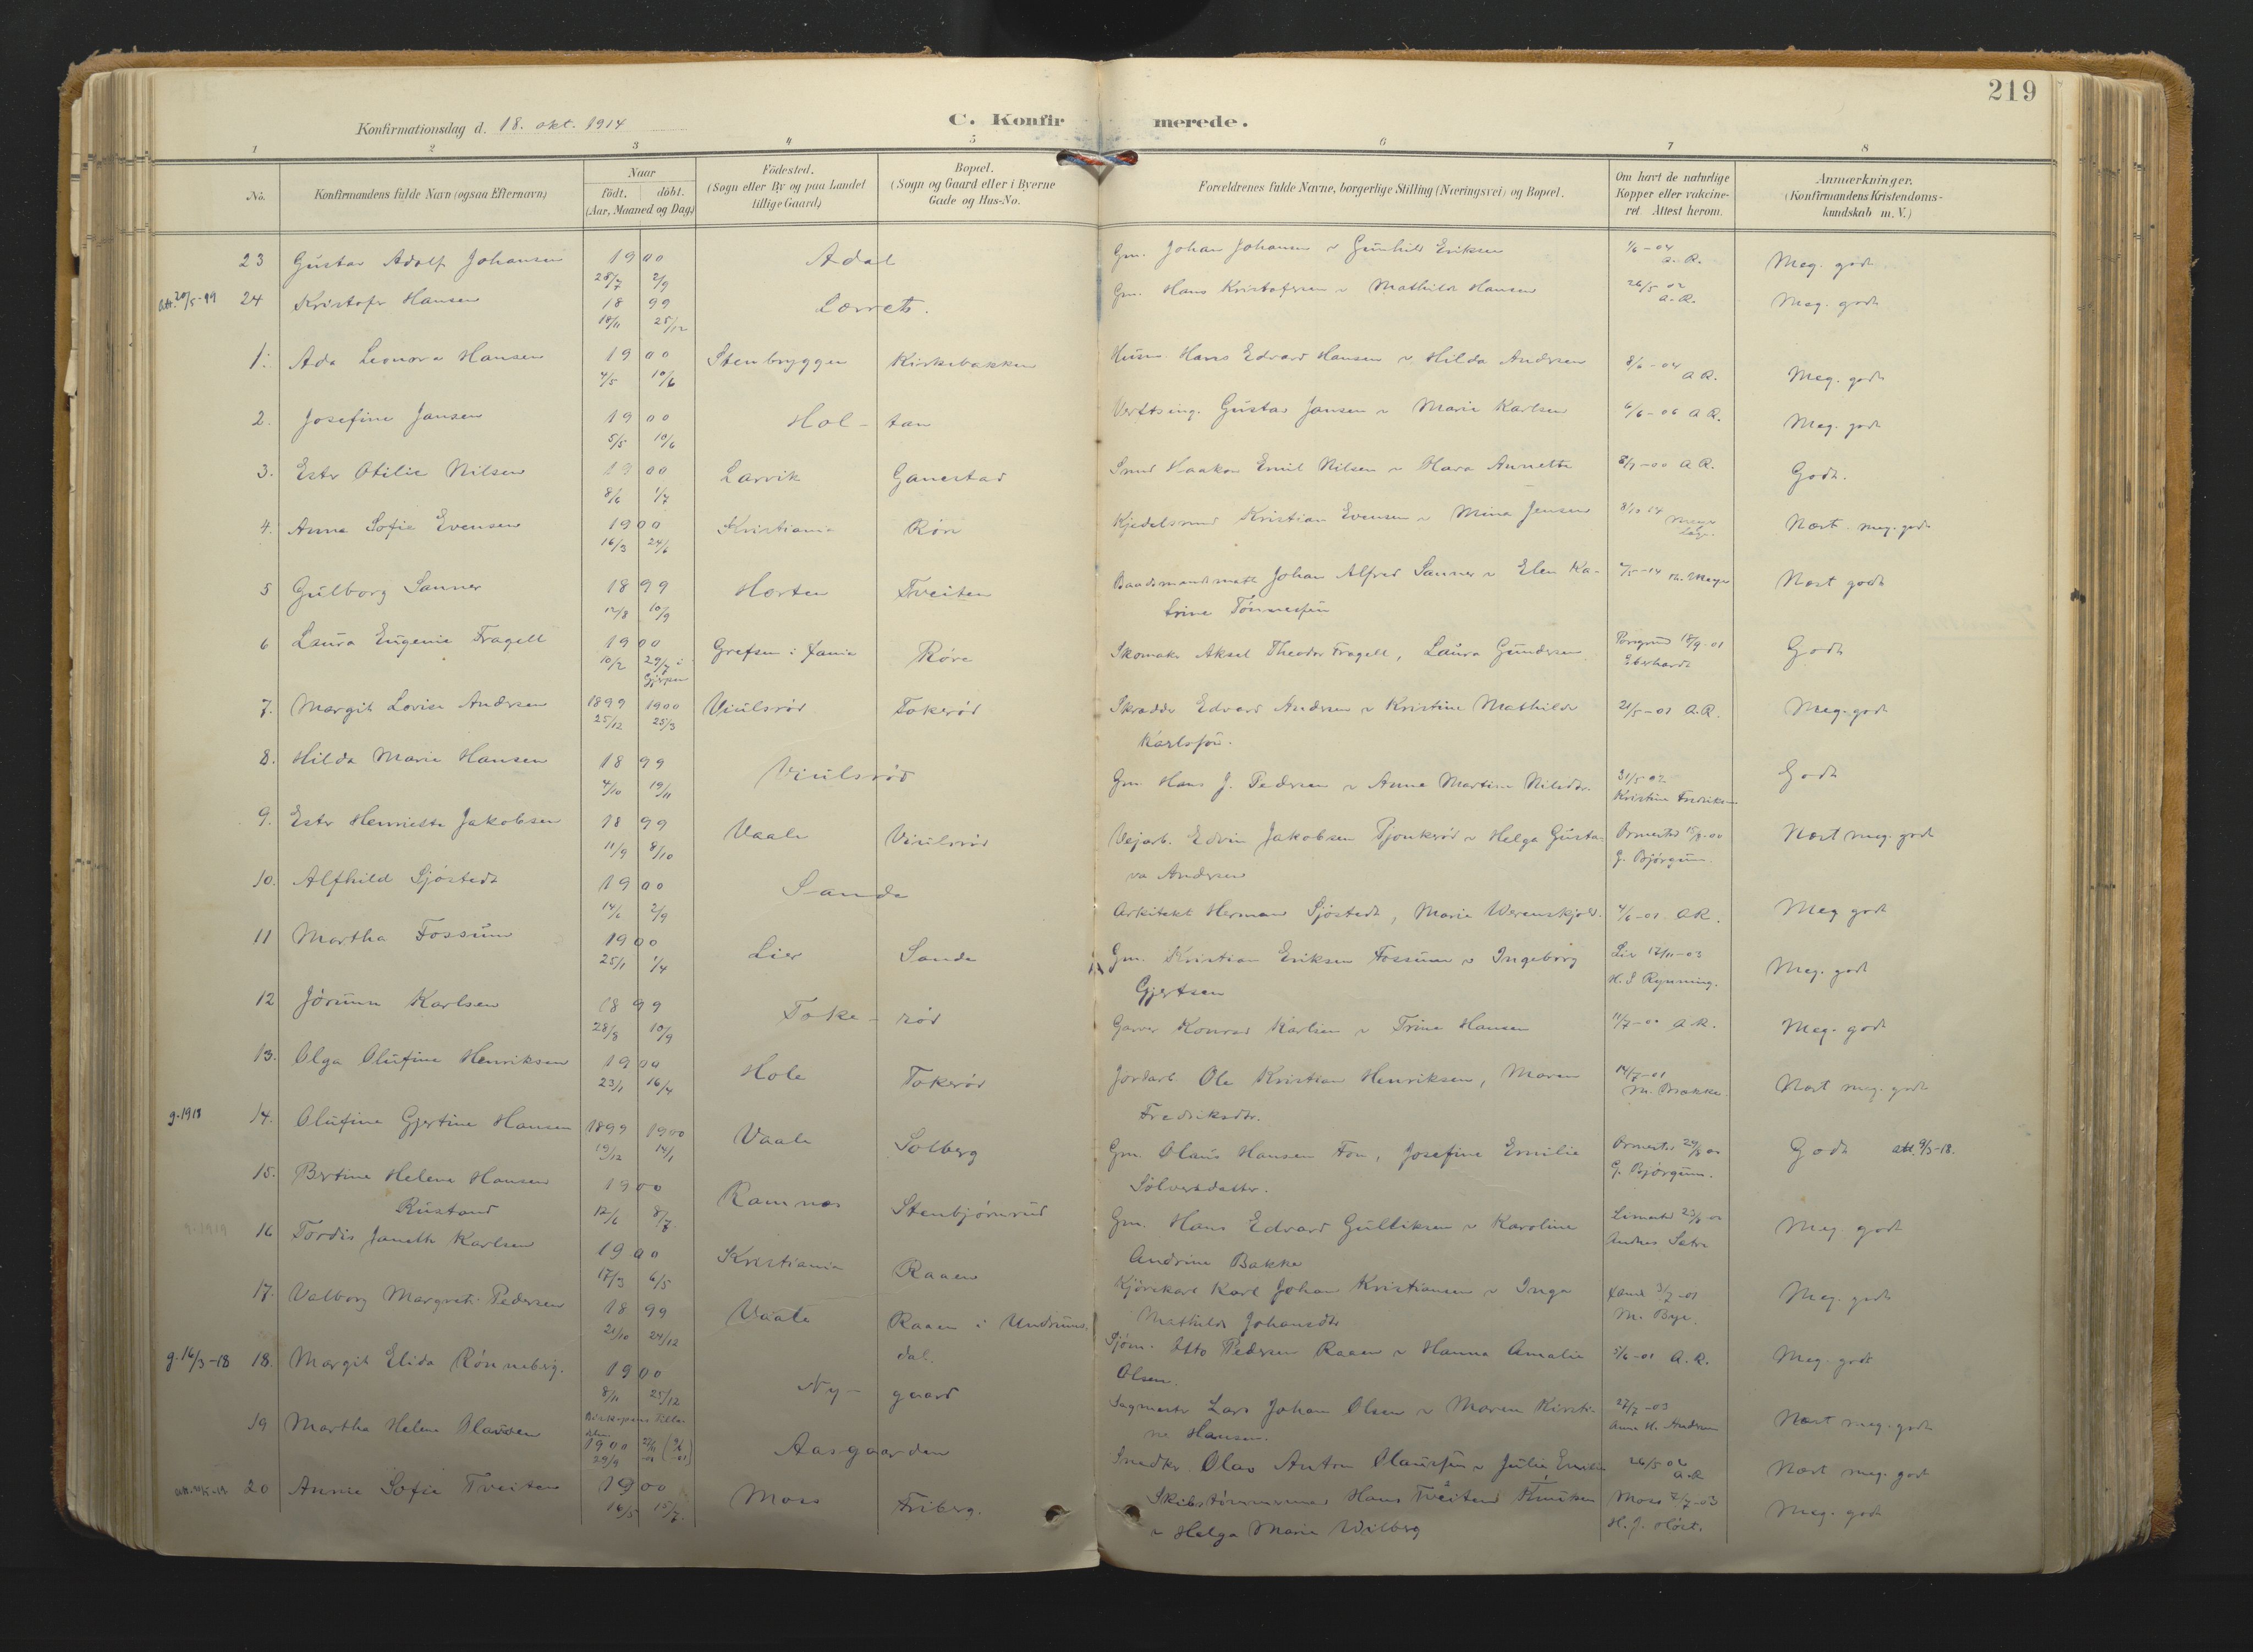 219
Konfirmationsdag d. 18. okt. 1914
C. Konfirmerede.
1 2 3 4 5 6 7 8
No.
Konfirmandens fulde Navn (ogsaa Efternavn)
Naar
født. døbt.
(Aar, Maaned og Dag.)
Fødested.
(Sogn eller By og paa Landet
tillige Gaard)
Bopæl.
(Sogn og Gaard eller i Byerne
Gade og Hus-No.
Forældrenes fulde Navne, borgerlige Stilling (Næringsvei) og Bopæl.
Om havt de naturlige
Kopper eller vakcine-
ret. Attest herom.
Anmærkninger.
(Konfirmandens Kristendoms-
kundskab m. V.)
23 Gustav Adolf Johansen 1900 28/7 2/9 Adal Gm. Johan Johansen & Gunhild Eriksen 1/6-04 A.R. Meg. godt
24 Kristofer Hansen 1899 18/11 25/12 Gm. Hans Kristofersen & Mathilde Hansen 26/5 02 A.R. Meg. godt
1. Ada Leonora Hansen 1900 4/5 10/6 Stenbryggen Kirkebakken Husm. Hans Edvard Hansen & Hilda Andersen 8/6-04 A.R. Meg. godt
2. Josefine Jansen 1900 5/5 10/6 Hol-tan Gustav Jansen & Marie Karlsen 6/6-06 A.R. Meg. godt
3. Ester Otilie Nilsen 1900 8/6 1/7 Larvik Ganestad Smed Haakon Emil Nilsen & Annette A.R. Godt.
4. Anna Sofie Evensen 1900 16/3 24/6 Kristiania Røre Kjedelsmed Kristian Evensen & Mina Jensen 8/10 14 Næst meg. godt
5 Gulborg Sanner 1899 12/8 10/9 Horten Tveiten Baadsmandsmatt Johan Alfred Sanner & Elen Ka-
trine Tønnesen Næst godt
6 Laura Eugenie Fragell 1900 10/2 29/7 i Gjerpen Grefsen i Røre Skomaker Aksel Theodor Fragell, Laura Gundersen Porsgrund 18/9-01
Eberhardt Godt
7. Margit Lovise Andersen 1899 25/12 1900 25/3 Viulsrød Tokerød Skrædder Edvard Andersen & Kristine Mathilde
21/5-01 A.R. Meg. godt
8. Hilda Marie Hansen 1899 4/10 19/11 Viulsrød Gm. Hans J. Pedersen & Anne Martine Nilsdtr. 31/5 02
Kristine Fredriksen Godt
9. Ester Henriette Jakobsen 1899 11/9 8/10 Vaale Viulsrød Vejarb. Edvin Jakobsen & Helga Gusta-
va Andersen G. Bjørgum. Næst meg. godt
10. Alfhild Sjøstedt 1900 14/6 2/9 Sande Arkitekt Herman Sjøstedt, Marie Werenskjold. 4/6-01 A.R. Meg godt
11 Martha Fossum 1900 25/1 1/4 Lier Sande Gm. Kristian Eriksen Fossum & Ingeborg
Gjertsen Lier 12/11-03
H. S Rynning. Meg. godt
12 Jørunn Karlsen 1899 28/8 10/9 Toke-rød Garver Konrad Karlsen & Trine Hansen A.R. Meg. godt
13. Olga Olufine Henriksen 1900 23/1 16/4 Hole Tokerød Jordarb. Ole Kristian Henriksen, Maren
Fredriksdtr. 14/7-01
M. Bakke Næst meg. godt
g. 1918 14. Olufine Gjertine Hansen 1899 19/12 1900 14/1 Vaale Solberg Gm. Olaus Hansen Fon, Josefine Emilie
Sølversdatter. G. Bjørgum. Godt att. 9/3-18.
15. Bertine Helene Hansen
Rustand 1900 12/6 8/7. Ramnes Stenbjørnrud Gm. Hans Edvard Gulliksen & Karoline
Andrine Bakke Meg. godt
g. 1919 16 Tordis Janette Karlsen 1900 17/3 6/5 Kristiania Raaen Kjørekarl Karl Johan Kristiansen & Inga
Mathilde Johansdtr. M. Bye. Meg. godt
17. Valborg Margrete Pedersen 1899 21/10 24/12 Vaale Raaen i Undrums-
dal. Sjøm. Otto Pedersen Raaen & Hanna Amalie
Olsen. 5/6-01 A.R. Meg. godt
g. 16/3-18 18. Margit Elida Rønneberg. 1900 8/11 25/12 Ny-gaard Sagmester Lars Johan Olsen & Maren Kirsti-
ne Hansen. 27/7-03
Anne H. Andersen Næst meg. godt
19 Martha Helene Olaussen 1900 29/9 Aasgaarden Snedker Olav Anton Olaussen & Julie Emilie 26/5 02 A.R. Næst meg. godt
20 Annie Sofie Tveiten 1900 16/5 15/7. Moss Friberg. Skibstømmermand Hans Tveiten Knutsen
& Helga Marie Wilberg Moss 2/7-03
H. J. Høst. Meg. godt